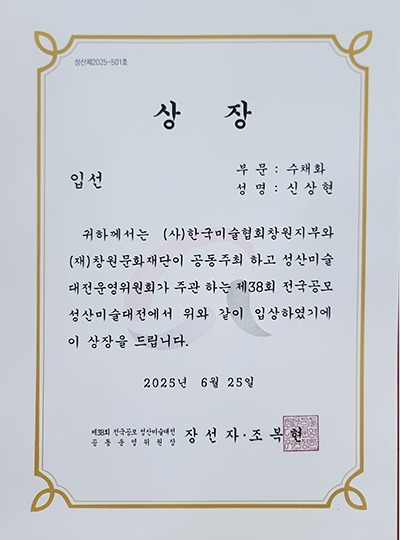 성산제2025-501호
상 장
입선
부 문 : 수채화
성 명 : 신상현
귀하께서는 (사)한국미술협회창원지부와
(재)창원문화재단이 공동주최 하고 성산미술
대전운영위원회가 주관 하는 제38회 전국공모
성산미술대전에서 위와 같이 입상하였기에
이 상장을 드립니다.
2025년 6월 25일
제38회 전국공모 성산미술대전
공동운영위원장 장선자·조복현